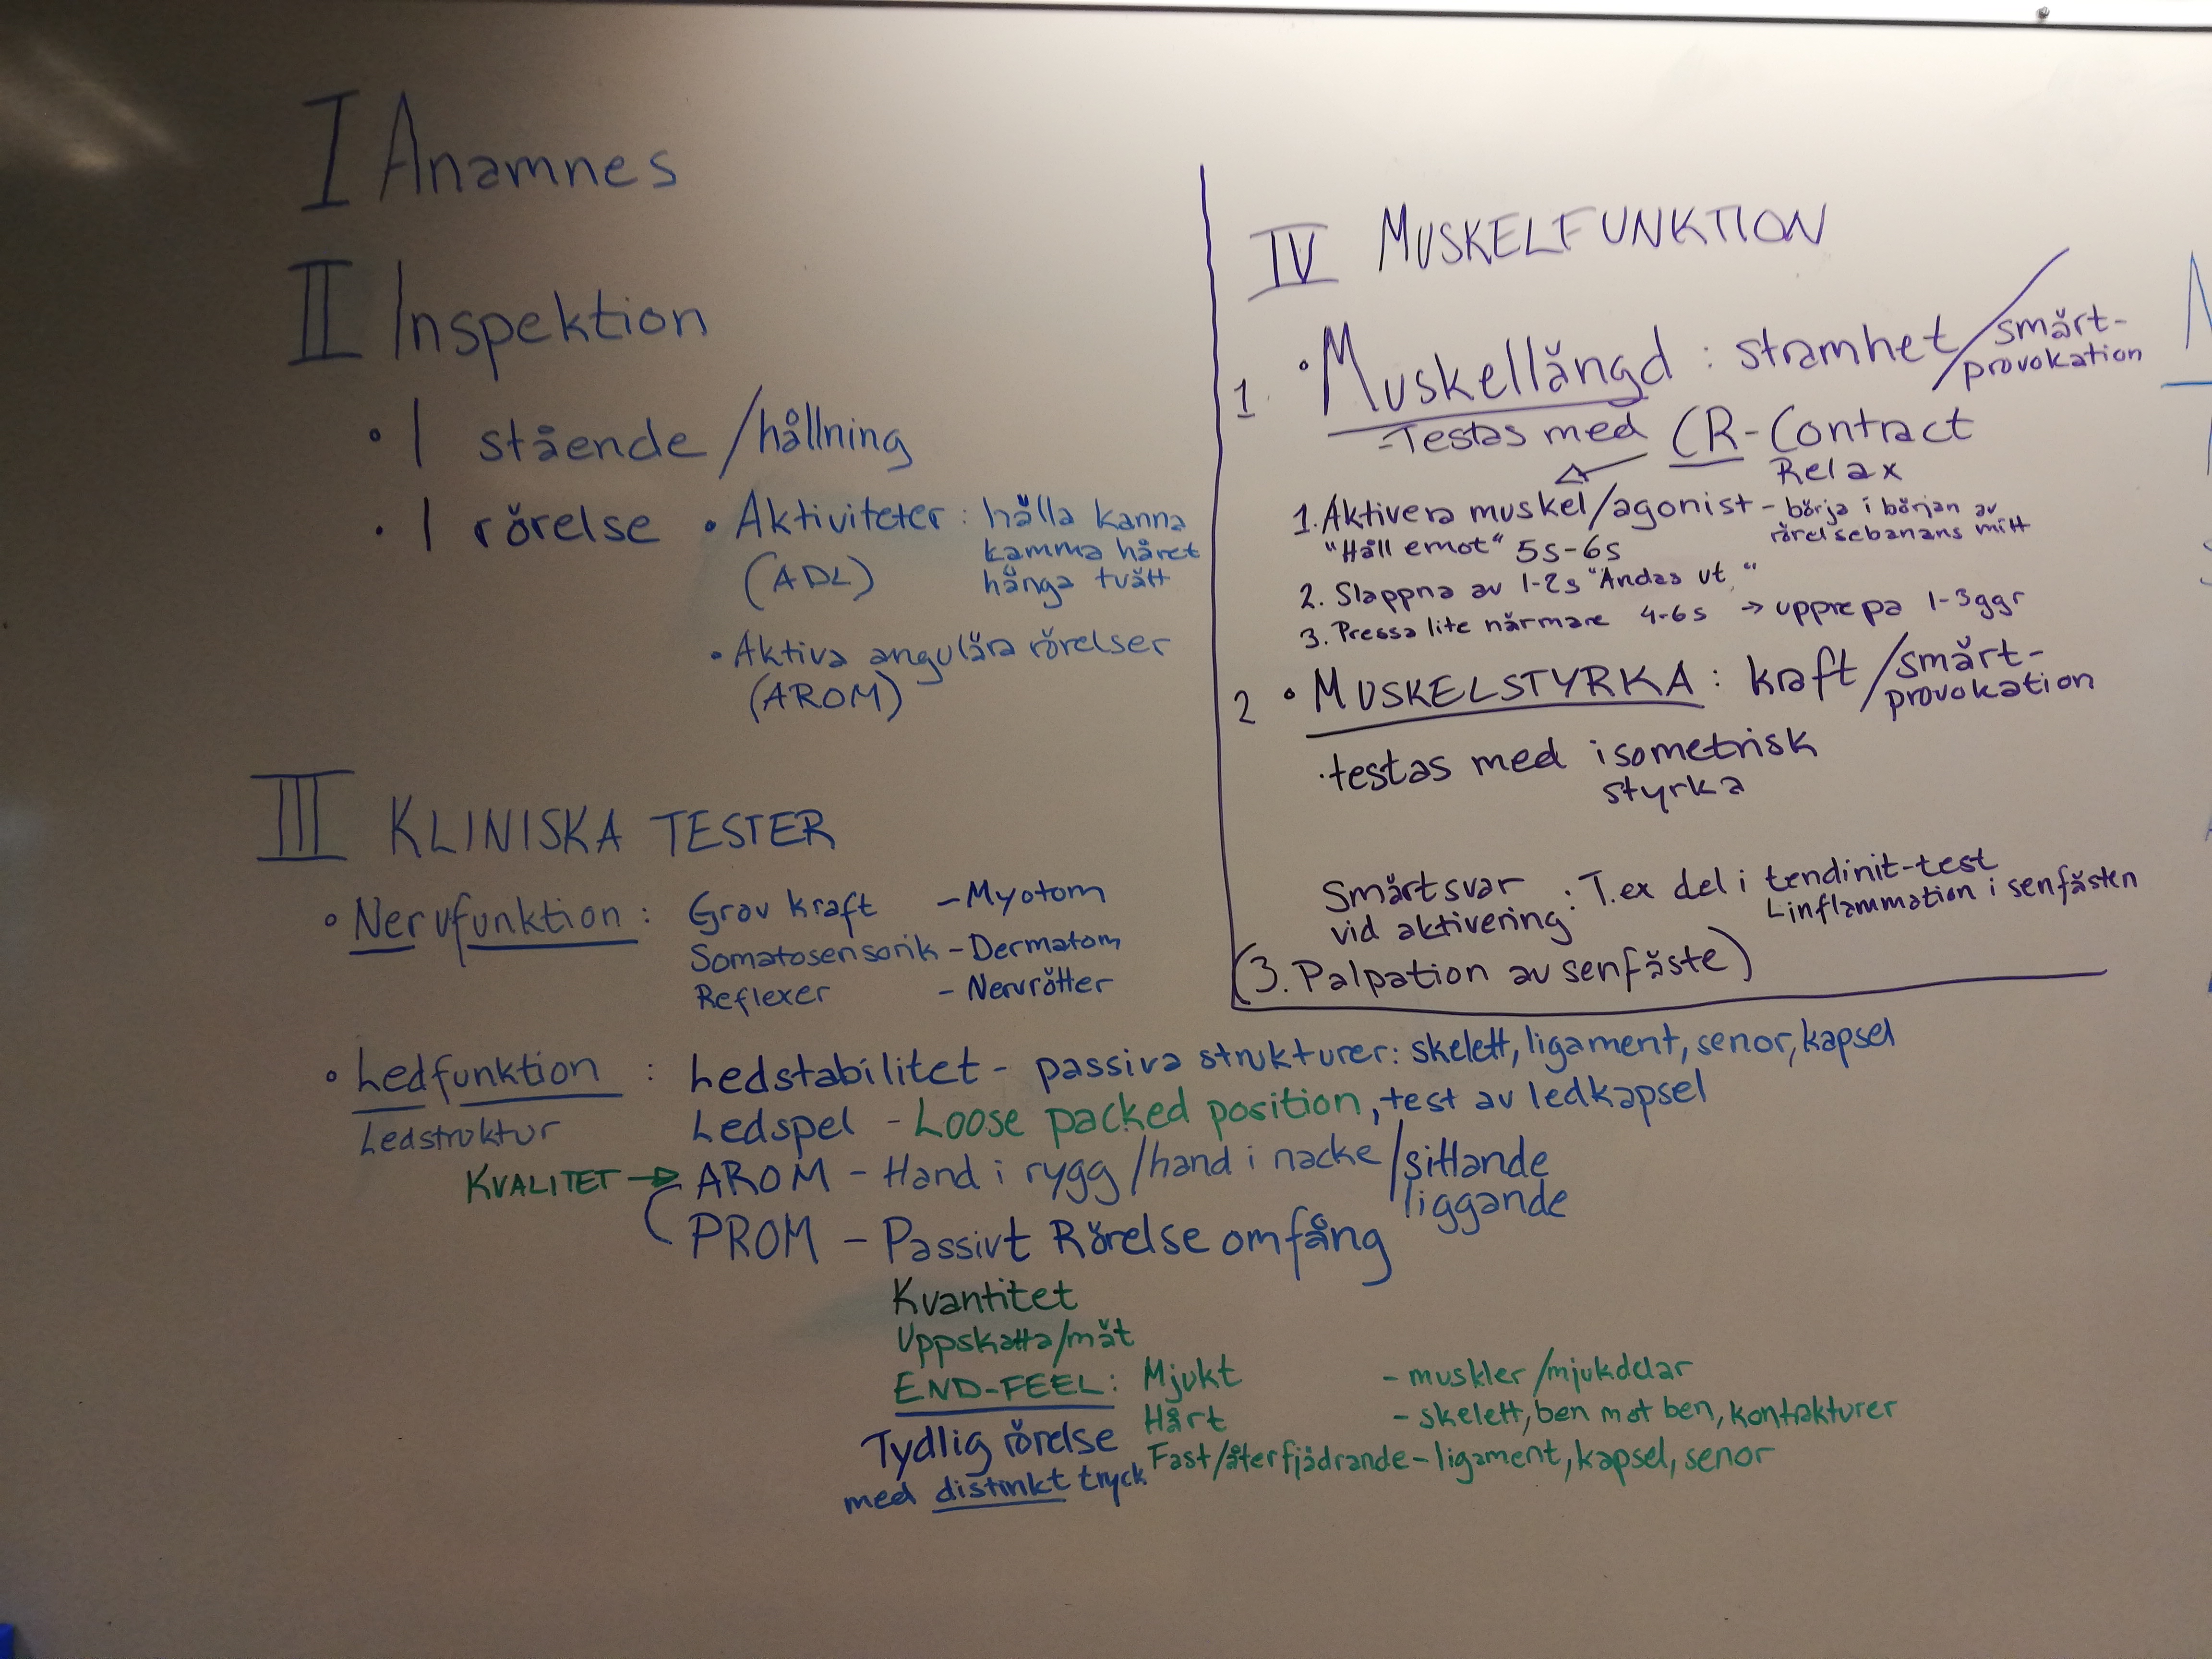 I Anamnes
II Inspektion
• I stående/hållning
• I rörelse • Aktiviteter: hålla kanna
(ADL) kamma håret
hänga tvätt
• Aktiva angulära rörelser
(AROM)
III KLINISKA TESTER
• Nervfunktion: Grov kraft - Myotom
Somatosensorik - Dermatom
Reflexer - Nervrötter
• Ledfunktion : Ledstabilitet - passiva strukturer: skelett, ligament, senor, kapsel
Ledstruktur Ledspel - Loose packed position, test av ledkapsel
KVALITET → AROM - Hand i rygg/hand i nacke/sittande
liggande
PROM - Passivt Rörelseomfång
Kvantitet
Uppskatta/mät
END-FEEL: Mjukt - muskler/mjukdelar
Hårt - skelett, ben mot ben, kontrakturer
Tydlig rörelse Fast/återfjädrande - ligament, kapsel, senor
med distinkt tryck
IV MUSKELFUNKTION
1 • Muskellängd: stramhet/smärt-
provokation
- Testas med CR - Contract
Relax
1. Aktivera muskel/agonist - börja i början av
rörelsebanans mitt
"Håll emot" 5s-6s
2. Slappna av 1-2s "Andas ut"
3. Pressa lite närmare 4-6s → upprepa 1-3ggr
2 • MUSKELSTYRKA: kraft/smärt-
provokation
• testas med isometrisk
styrka
Smärtsvar
vid aktivering: T.ex del i tendinit-test
L inflammation i senfästen
(3. Palpation av senfäste)